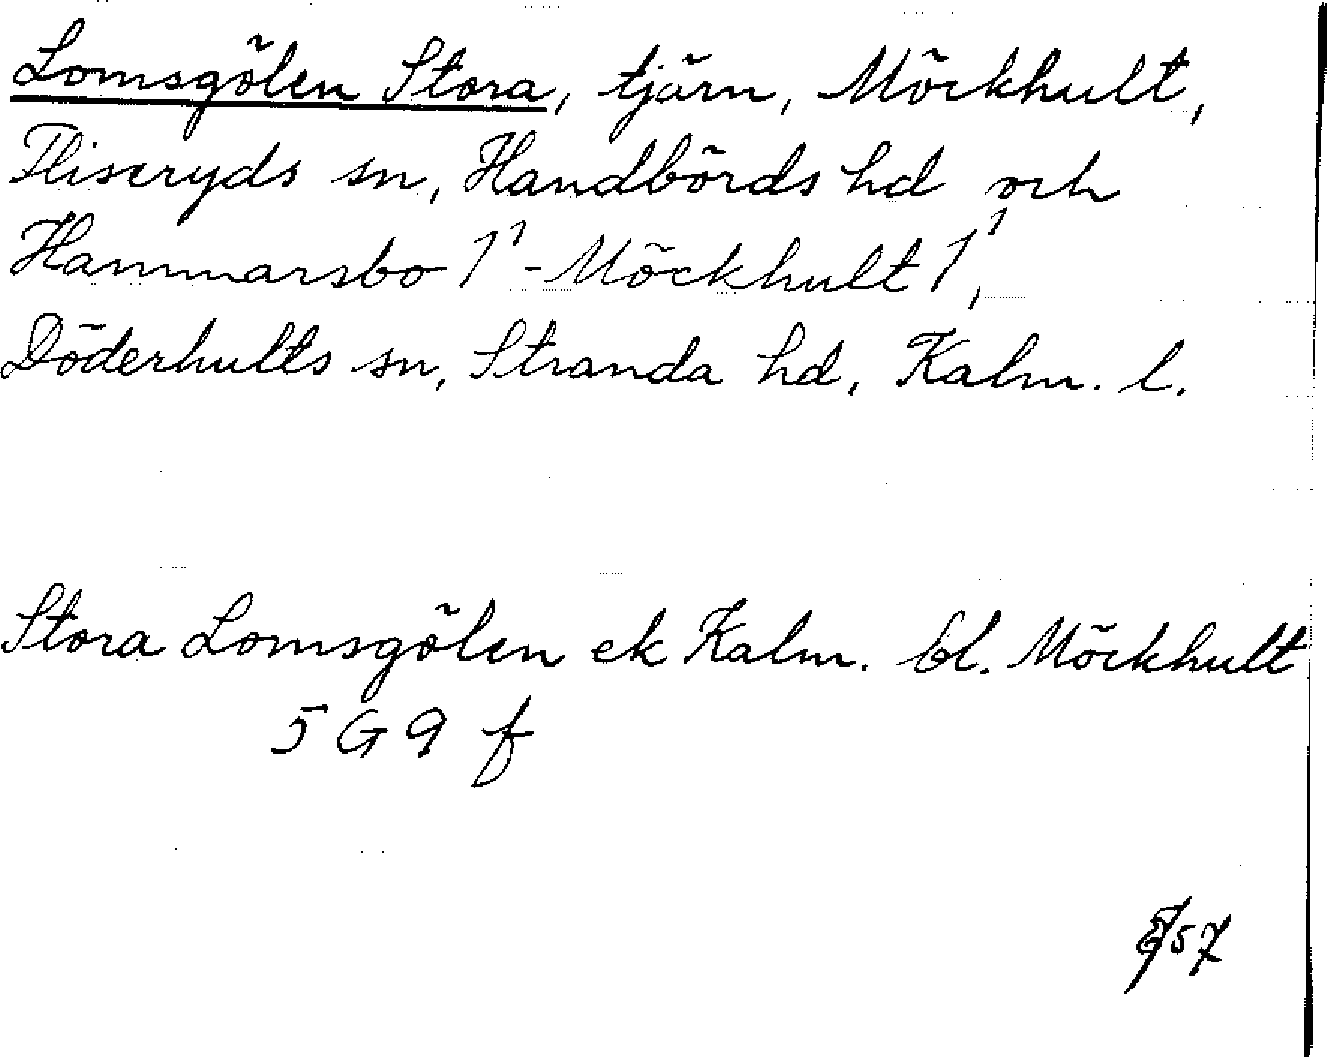 Lomsgölen Stora, tjärn, Möckhult,
Fliseryds sn, Handbörds hd och
Hammarsbo 1¹-Möckhult 1¹,
Döderhults sn, Stranda hd, Kalm. l.
Stora Lomsgölen ek Kalm. bl. Möckhult
5 G 9 f
57